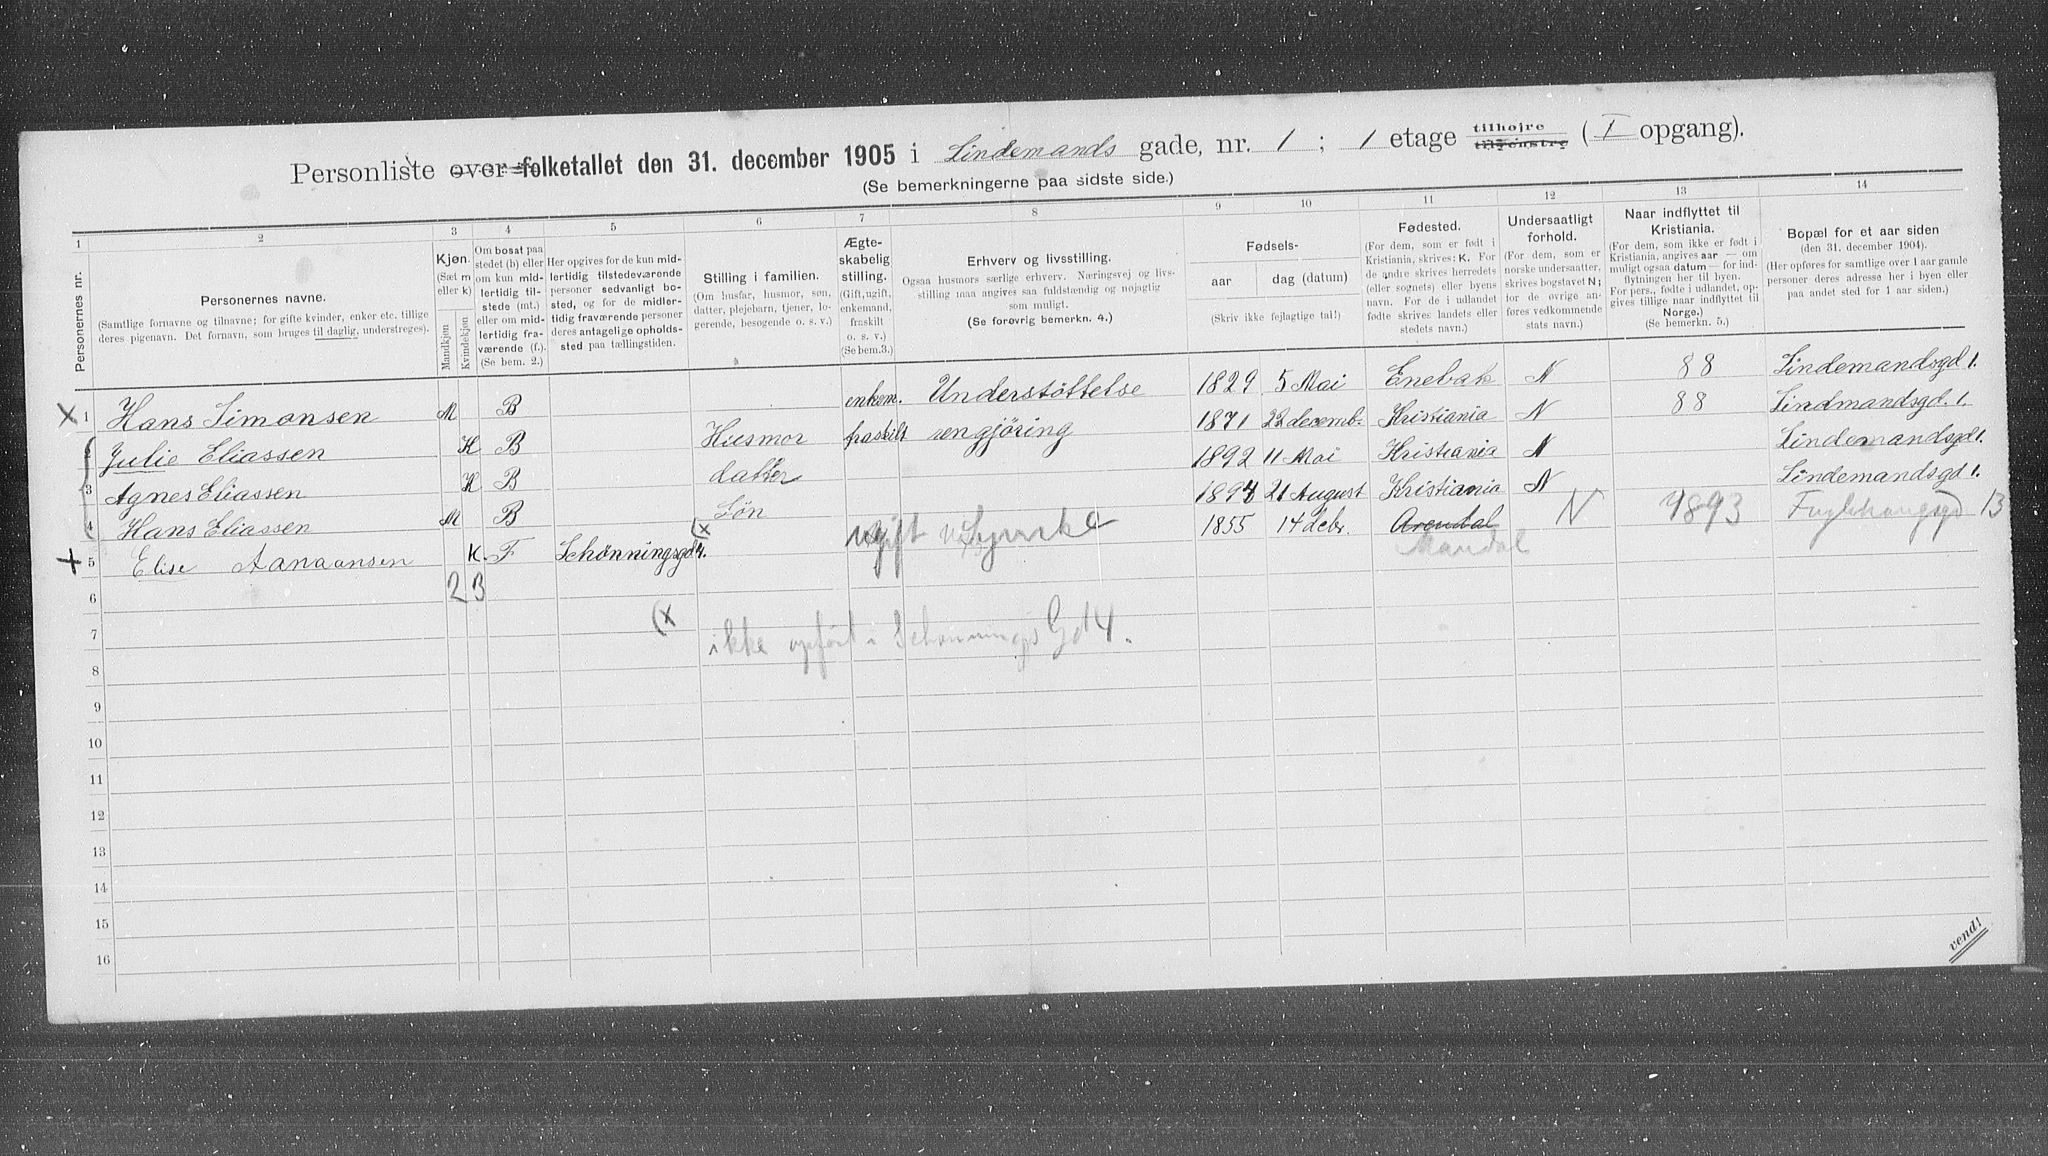 Personliste over folketallet den 31. december 1905 i Lindemands gade, nr. 1 ; 1 etage tilhøjre tilvenstre ( I opgang).
(Se bemerkningerne paa sidste side.)
1 2 3 4 5 6 7 8 9 10 11 12 13 14
Personernes nr.
Personernes navne.
(Samtlige fornavne og tilnavne; for gifte kvinder, enker etc. tillige
deres pigenavn. Det fornavn, som bruges til daglig, understreges).
Kjøn.
(Sæt m
eller k)
Mandkjøn
Kvindekjøn
Om bosat paa
stedet (b) eller
om kun mid-
lertidig til-
stede (mt.)
eller om mid-
lertidig fra-
værende (f.).
(Se bem. 2.)
Her opgives for de kun mid-
lertidig tilstedeværende
personer sedvanligt bo-
sted, og for de midler-
tidig fraværende personer
deres antagelige opholds-
sted paa tællingstiden.
Stilling i familien.
(Om husfar, husmor, søn,
datter, plejebarn, tjener, lo-
gerende, besøgende o. s. v.)
Ægte-
skabelig
stilling.
(Gift, ugift,
enkemand,
fraskilt
o. s. v.)
(Se bem.3.)
Erhverv og livsstilling.
Ogsaa husmors særlige erhverv. Næringsvej og livs-
stilling maa angives saa fuldstændig og nøjagtig
som muligt.
(Se forøvrig bemerkn. 4.)
Fødsels-
aar dag (datum)
(Skriv ikke fejlagtige tal!)
Fødested.
(For dem, som er født i
Kristiania, skrives: K. For
de andre skrives herredets
(eller sognets) eller byens
navn. For de i udlandet
fødte skrives landets eller
stedets navn.)
Undersaatligt
forhold.
(For dem, som er
norske undersaatter,
skrives bogstavet N;
for de øvrige an-
føres vedkommende
stats navn.)
Naar indflyttet til
Kristiania.
(For dem, som ikke er født i
Kristiania, angives aar — om
muligt ogsaa datum — for ind-
flytningen her til byen.
For pers., fødte i udlandet, op-
gives tillige naar indflyttet til
Norge.)
(Se bemerkn. 5.)
Bopæl for et aar siden
(den 31. december 1904).
(Her opføres for samtlige over 1 aar gamle
personer deres adresse her i byen eller
paa andet sted for 1 aar siden.)
X 1 Hans Simonsen M B enkem. Understøttelse 1829 5 Mai Enebak N 88 Lindemandsgd 1.
2 Julie Eliassen K B Husmor fraskilt rengjøring 1871 22 decemb. Kristiania N 88 Lindmandsgd. 1.
3 Agnes Eliassen K B datter 1892 11 Mai Kristiania N Lindemandsgd 1.
4 Hans Eliassen M B Søn 1894 21 August Kristiania N Lindemandsgd 1.
X 5 Elise K. F Schønningsgd 4. (x Ugift Syerske 1855 14 Arendal Mandal N 1893 13
6 2 3
7 (x ikke opført i Schønnings Gd 4.
8
9
10
11
12
13
14
15
16
vend!